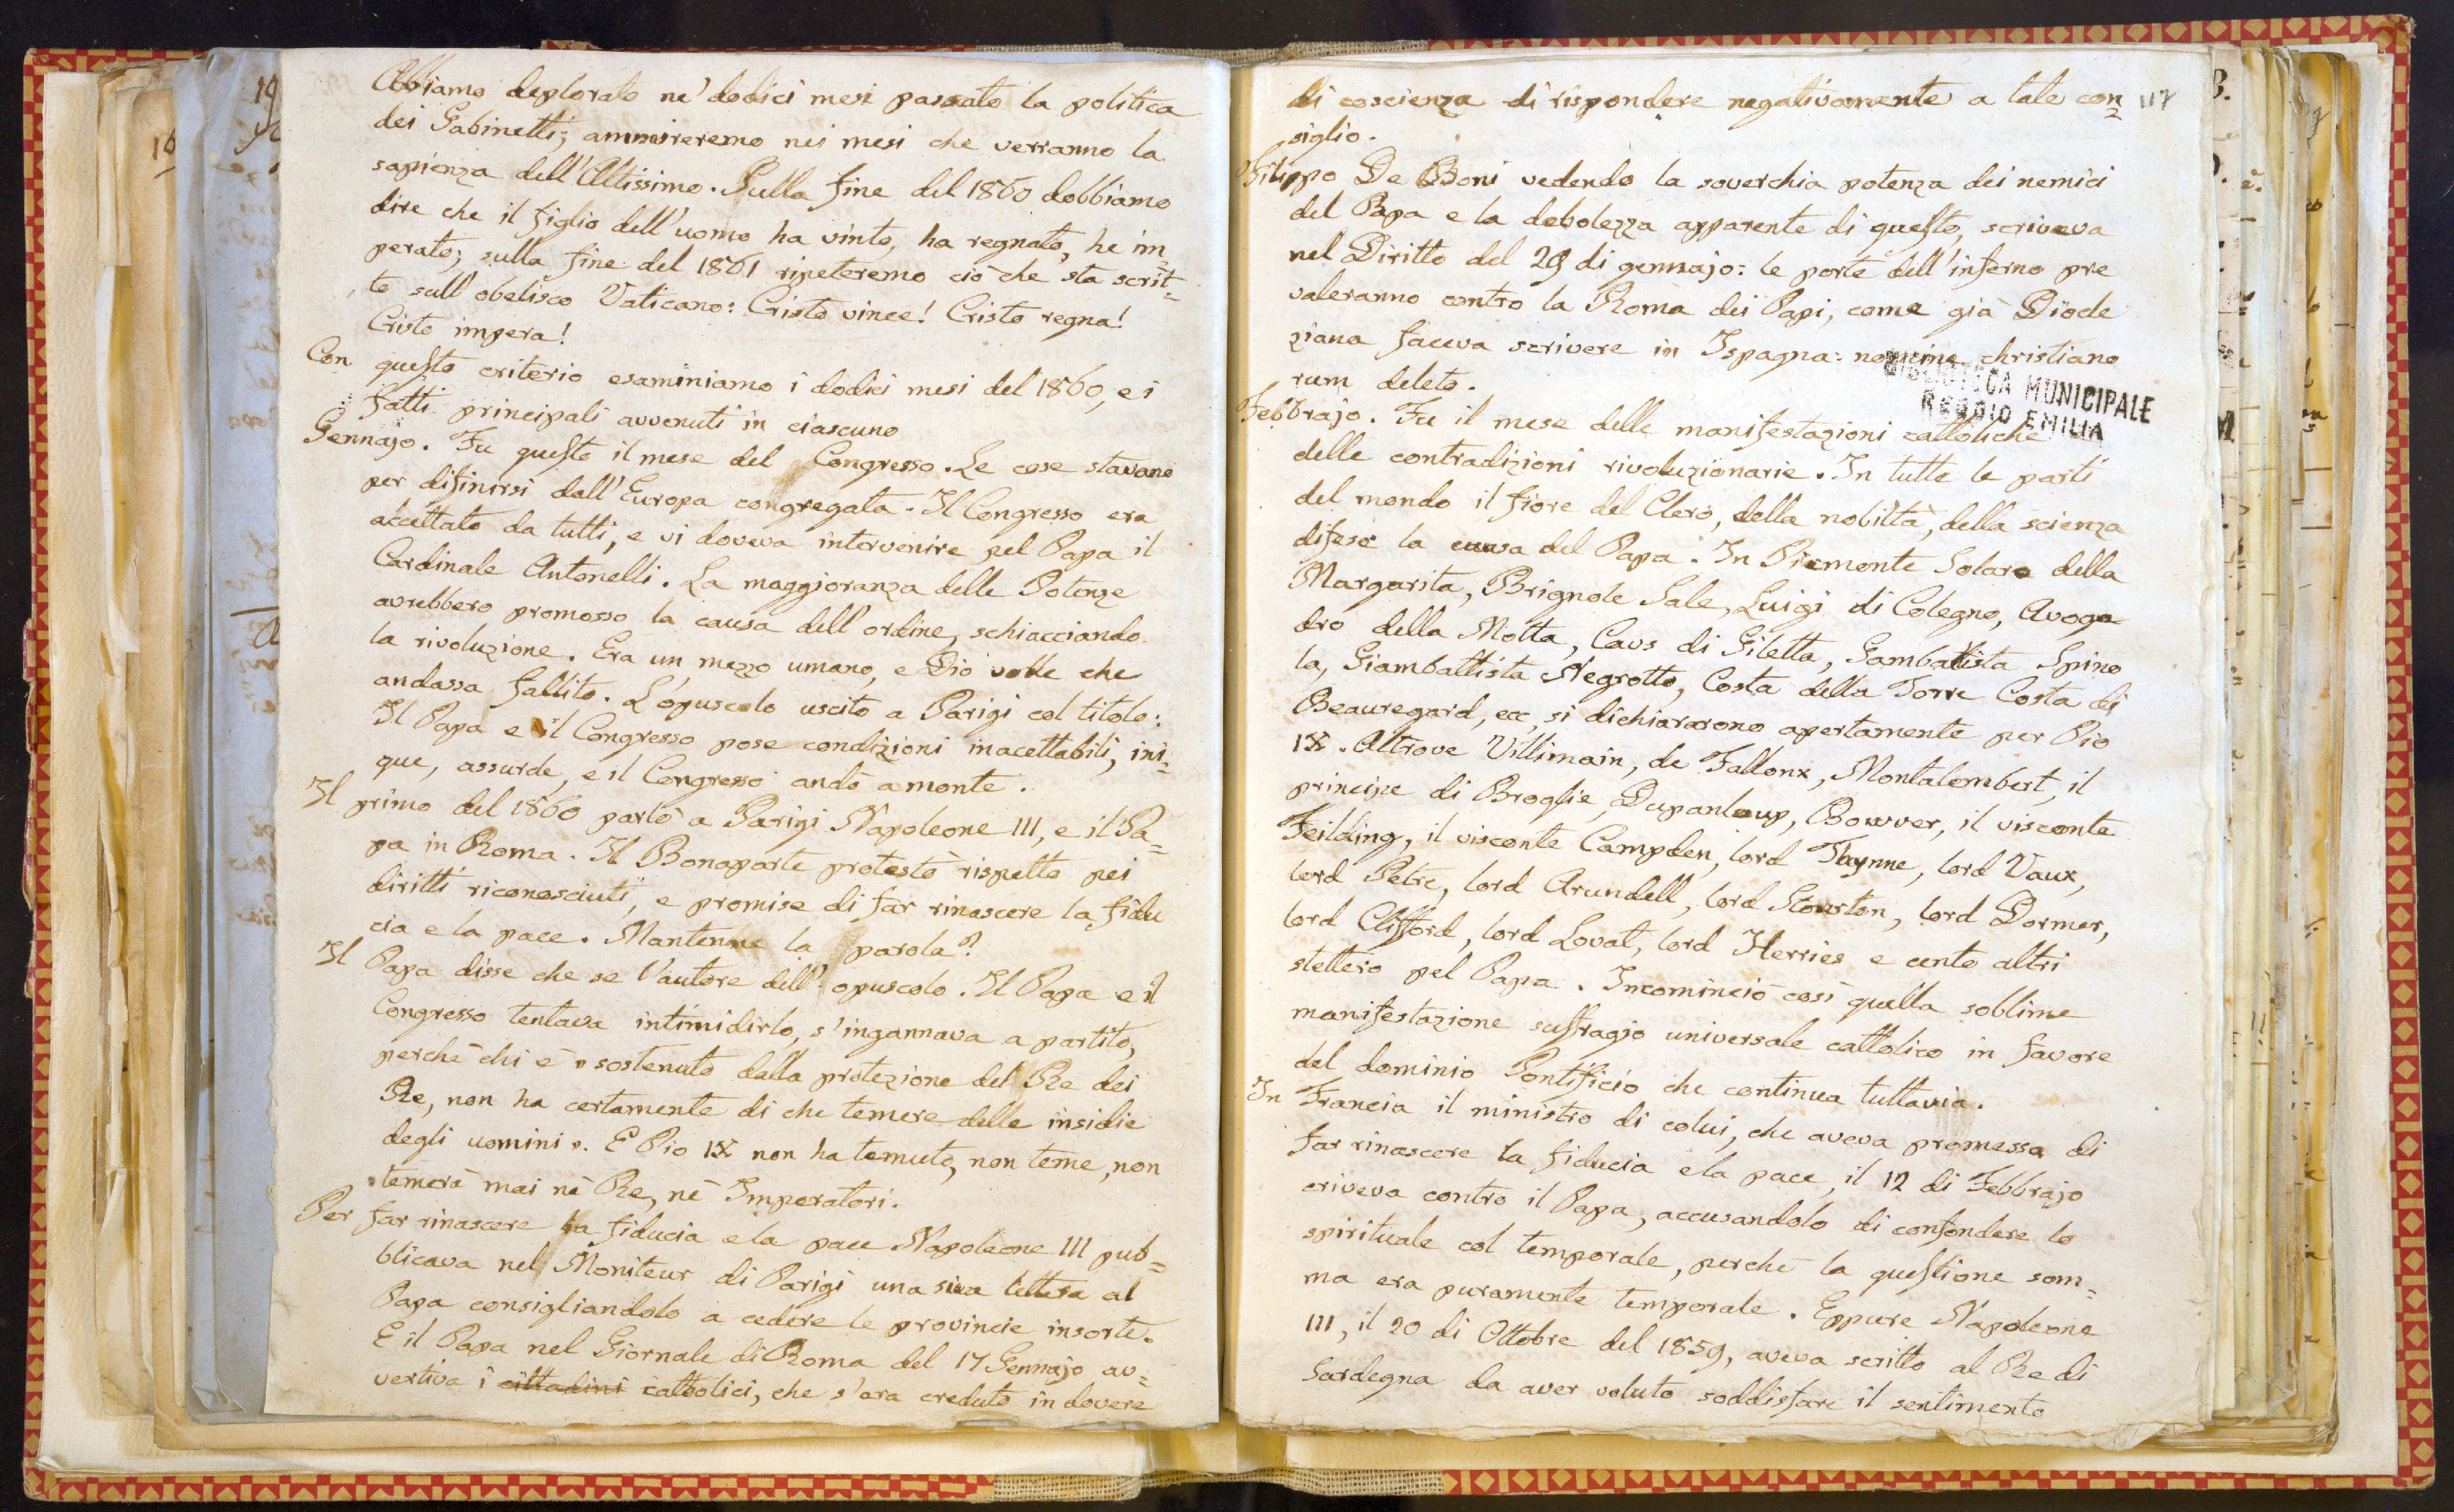 Abbiamo deplorato ne' dodici mesi passato la politica
dei Gabinetti; ammireremo nei mesi che verranno la
sapienza dell'Altissimo. Sulla fine del 1860 dobbiamo
dire che il figlio dell'uomo ha vinto, ha regnato, he im=
perato; sulla fine del 1861 ripeteremo ciò che sta scrit=
to sull'obelisco Vaticano: Cristo vince! Cristo regna!
Cristo impera!
Con questo criterio esaminiamo i dodici mesi del 1860, e i
fatti principali avvenuti in ciascuno
Gennajo. Fu questo il mese del Congresso. Le cose stavano
per difinirsi dall'Europa congregata. Il Congresso era
accettato da tutti, e vi doveva intervenire pel Papa il
Cardinale Antonelli. La maggioranza delle Potenze
avrebbero promosso la causa dell'ordine, schiacciando
la rivoluzione. Era un mezzo umano, e Dio volle che
andassa fallito. L'opuscolo uscito a Parigi col titolo:
Il Papa e il Congresso pose condizioni inacettabili, ini=
que, assurde, e il Congresso andò a monte.
Il primo del 1860 parlò a Parigi Napoleone III, e il Pa=
pa in Roma. Il Bonaparte protestò rispetto pei
diritti riconosciuti, e promise di far rinascere la fidu
cia e la pace. Mantenne la parola?
Il Papa disse che se l'autore dell'opuscolo. Il Papa e il
Congresso tentava intimidirlo, s'ingannava a partito,
perchè chi è " sostenuto dalla protezione del Re dei
Re, non ha certamente di che temere delle insidie
degli uomini ". E Pio IX non ha temuto, non teme, non
temerà mai nè Re, nè Imperatori.
Per far rinascere la fiducia e la pace Napoleone III pub=
blicava nel Moniteur di Parigi una sua lettera al
Papa consigliandolo a cedere le provincie insorte.
E il Papa nel Giornale di Roma del 17 Gennajo av=
vertiva i cittadini cattolici, che s'era creduto in dovere
117
di coscienza di rispondere negativamente a tale con=
siglio.
Filippo De Boni vedendo la soverchia potenza dei nemici
del Papa e la debolezza apparente di questo, scriveva
nel Diritto del 29 di gennajo: le porte dell'inferno pre
valeranno contro la Roma dei Papi, come già Diocle
ziana faceva scrivere in Ispagna: nomine christiano
rum deleto.
BIBLIOTECA MUNICIPALE
REGGIO EMILIA
Febbrajo. Fu il mese delle manifestazioni cattoliche
delle contradizioni rivoluzionarie. In tutte le parti
del mondo il fiore del Clero, della nobiltà, della scienza
difese la causa del Papa. In Piemonte Solaro della
Margarita, Brignole Sale, Luigi di Colegno, Avoga
dro della Motta, Cavs di Giletta, Gambatista Spino
la, Giambattista Negrotto, Costa della Torre Costa di
Beauregard, ecc, si dichiararono apertamente per Pio
IX. Altrove Villimain, de Fallonx, Montalembert, il
principe di Broglie, Dupanloup, Bowver, il visconte
Feilding, il visconte Campden, lord Thynne, lord Vaux,
lord Petre, lord Arundell, lord Stourton, lord Dormer,
lord Clifford, lord Lovat, lord Herries e cento altri
stettero pel Papa. Incominciò così quella soblime
manifestazione suffragio universale cattolico in favore
del dominio Pontificio che continua tuttavia.
In Francia il ministro di colui, che aveva promessa di
far rinascere la fiducia e la pace, il 12 di Febbrajo
criveva contro il Papa, accusandolo di confondere lo
spirituale col temporale, perchè la questione som=
ma era puramente temporale. Eppure Napoleone
III, il 20 di Ottobre del 1859, aveva scritto al Re di
Sardegna da aver voluto soddisfare il sentimento